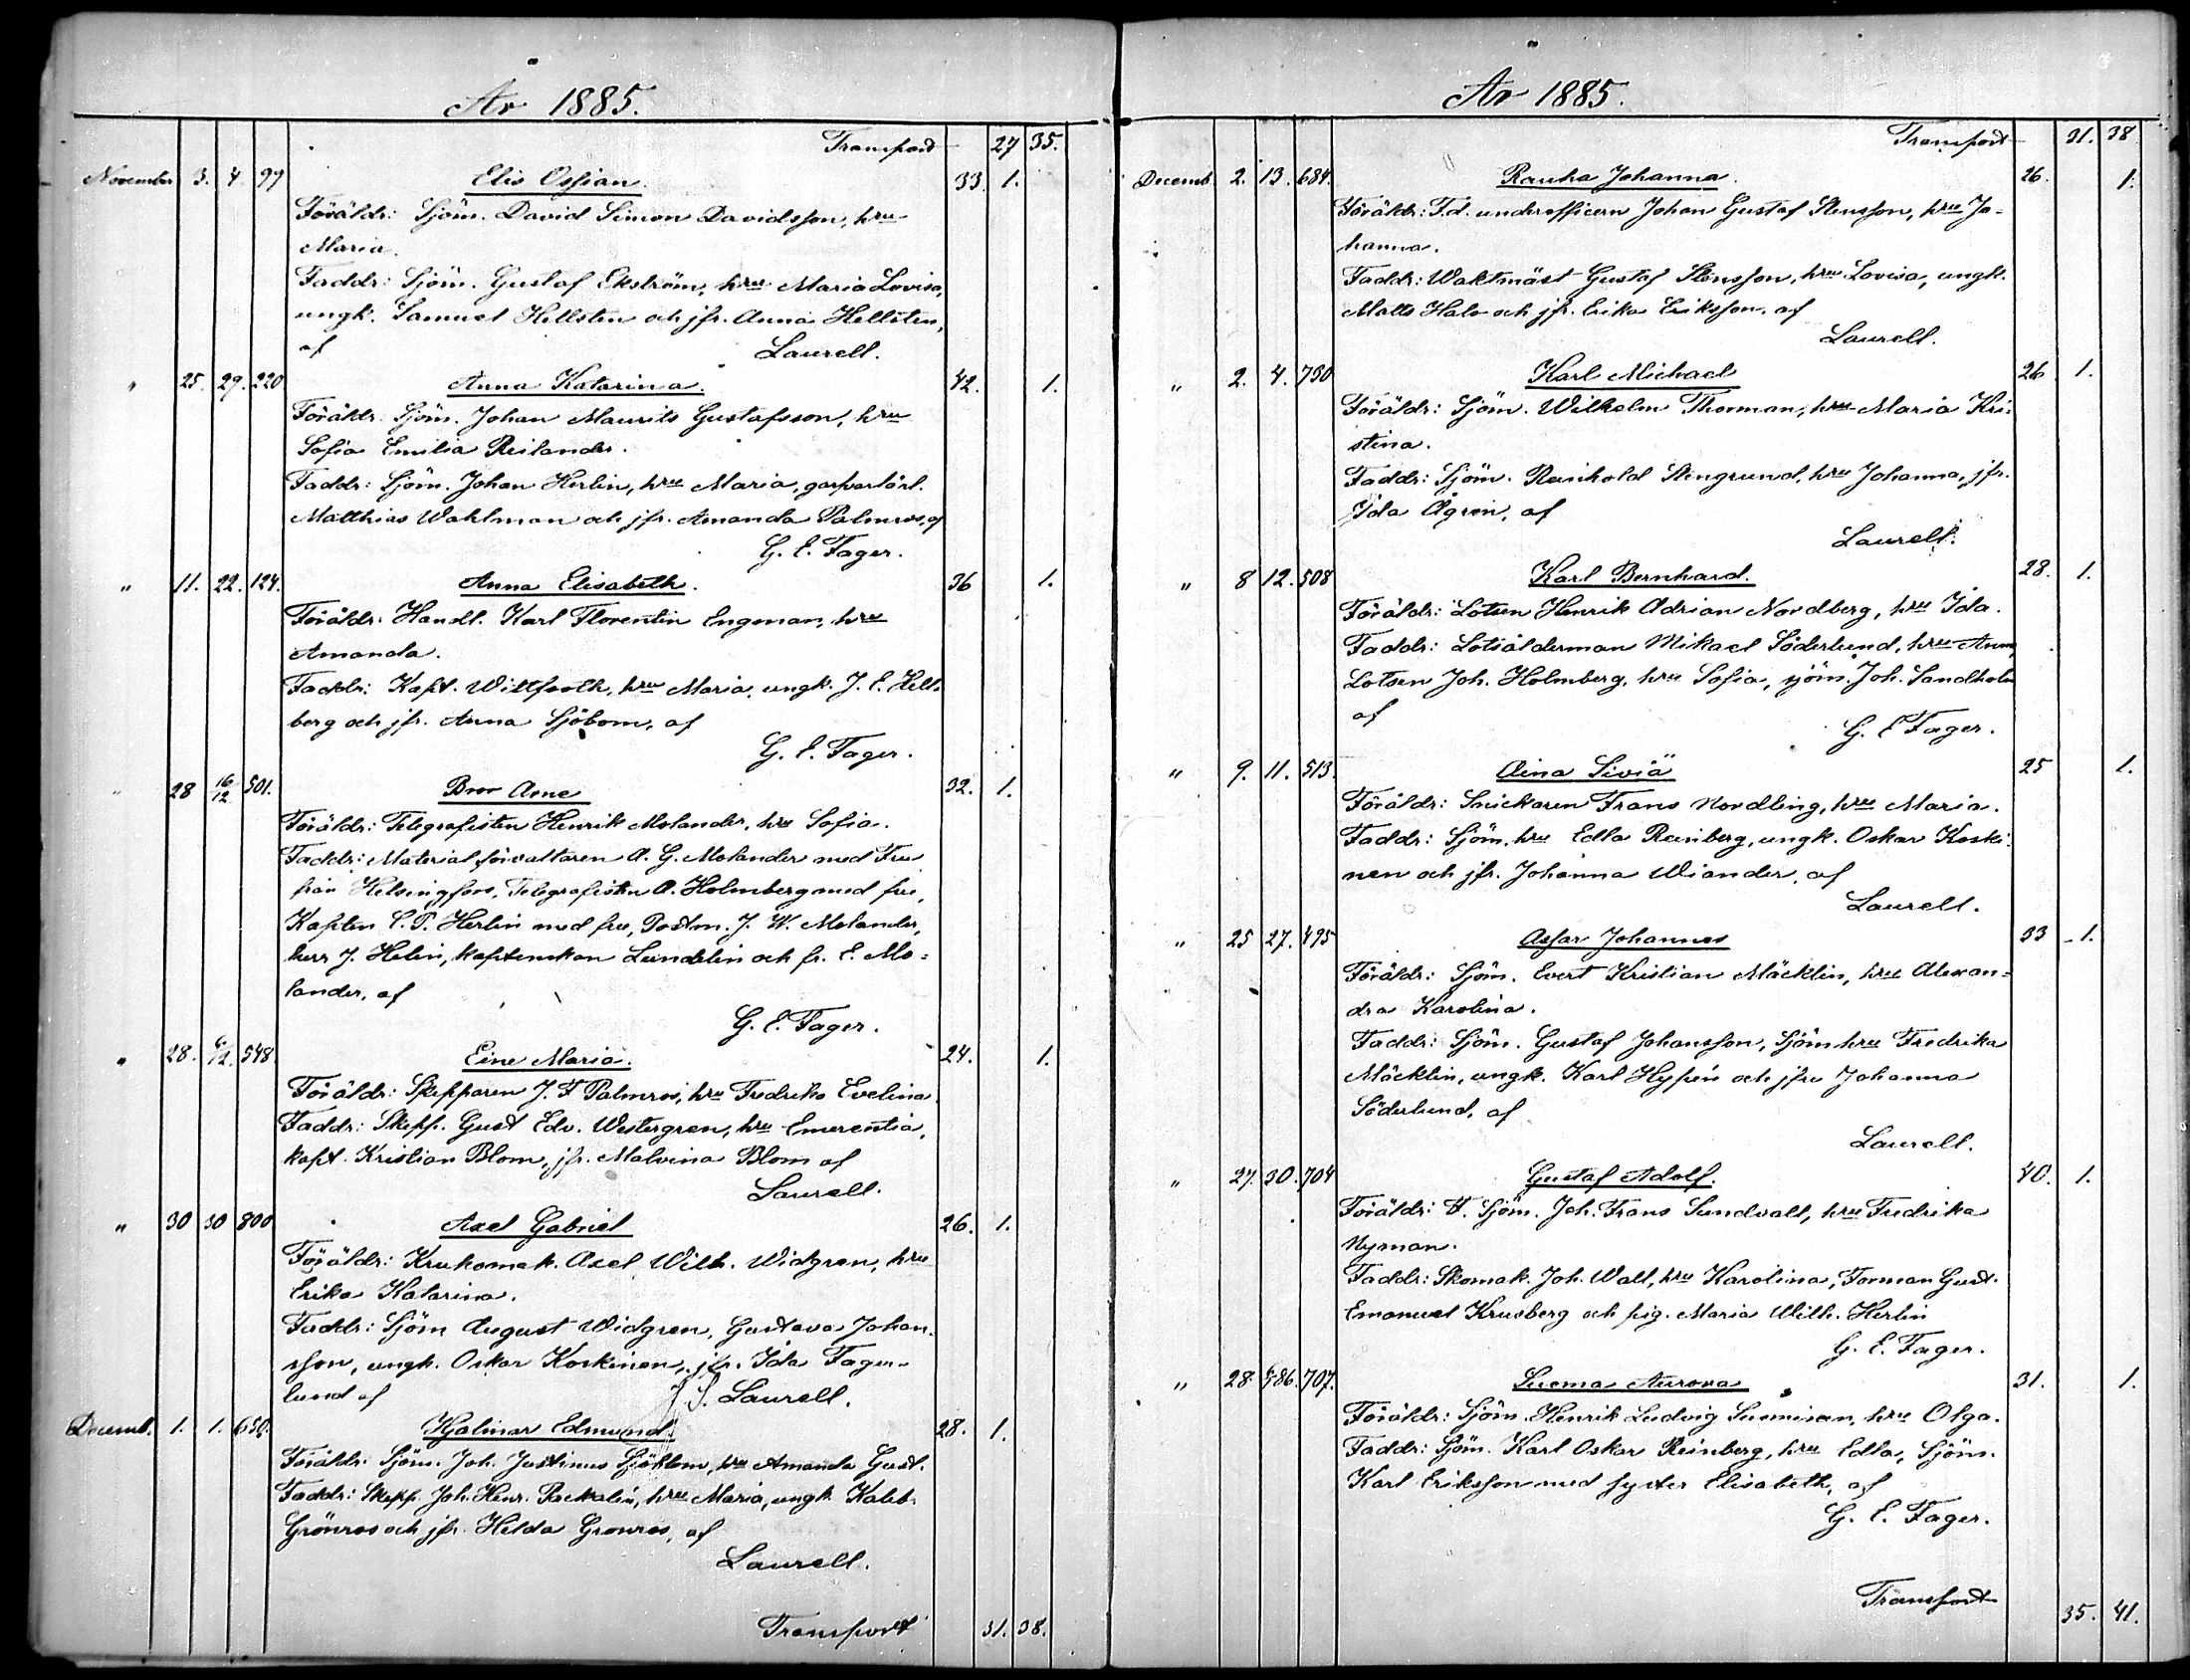 År 1885.
Transport 27 35.
November 3. 4. 99 Elis Ossian. 33. 1.
Föräldr: Sjöm. David Simon Davidsson, hru
Maria.
Faddr: Sjöm. Gustaf Ekström, hru Maria Lovisa,
ungk. Samuel Hellsten och jfr. Anna Hellsten,
af Laurell.
" 25. 29. 220 Anna Katarina. 42. 1.
Föräldr. Sjöm. Johan Maurits Gustafsson, hru
Sofia Emilia Reilander.
Faddr: Sjöm. Johan Herlin, hru Maria,
Matthias Wahlman och jfr. Amanda Palmros, af
G. E. Fager.
" 11. 22. 124. Anna Elisabeth. 36 1.
Föräldr. Handl. Karl Florentin Engman, hru
Amanda.
Faddr: Kapt. Wittfooth, hru Maria, ungk. J. E. Hell-
berg och jfr. Anna Sjöbom, af
G. E. Fager.
" 28 16/12 501. Bror Arne 32. 1.
Föräldr: Telegrafisten Henrik Molander, hru Sofia.
Faddr: Materialförvaltaren A. G. Molander med Fru
från Helsingfors, Telegrafisten A. Holmberg med fru,
Kapten C. P. Herlin med fru, Postm. J. W. Molander,
herr J. Helin, kaptenskan Lundelin och fr. E. Mo-
lander, af
G. E. Fager.
" 28. 6/12. 548 Eine Maria. 24. 1.
Föräldr: Skepparen J. F Palmros, hru Fredrika Evelina.
Faddr: Skepp. Gust Edv. Westergren, hru Emerentia,
kapt. Kristian Blom, jfr. Malvina Blom af
Laurell.
" 30 30 800 Axel Gabriel 26. 1.
Föräldr: Krukomak. Axel Wilh. Widgren, hru
Erika Katarina.
Faddr: Sjöm August Widgren, Gustava Johan-
sson, ungk. Oskar Koskinen, jfr. Ida Fager-
lund af J. S. Laurell.
Decemb. 1. 1. 650. Hjalmar Edmund. 28. 1.
Föräldr. Sjöm. Joh. Justinus Sjöblom, hru Amanda Gust.
Faddr: Skepp. Joh. Henr. Packalén, hru Maria, ungk. Kaleb
Grönros och jfr. Helda Gronros, af
Laurell.
Transport 31. 38.
År 1885.
Transport 31. 38
Decemb. 2. 13. 684. Rauha Johanna. 26. 1.
Föräldr: F.d. underofficern Johan Gustaf Stensson, hru Jo-
hanna.
Faddr: Waktmäst Gustaf Stensson, hru Lovisa, ungk.
Matts Halo och jfr. Erika Eriksson, af
Laurell.
" 2. 4. 790 Karl Michael 26 1.
Föräldr: Sjöm. Wilhelm Thorman, hru Maria Kri-
stina.
Faddr: Sjöm. Reinhold Stengrund, hru Johanna, jfr.
Ida Ågren, af
Laurell.
" 8 12. 508 Karl Bernhard. 28. 1.
Föräldr: Lotsen Henrik Adrian Nordberg, hru Ida.
Faddr: Lotsålderman Mikael Söderlund, hru Anna,
Lotsen Joh. Holmberg, hru Sofia, sjöm. Joh. Sandholm
af
G. E Fager.
" 9. 11. 513. Aina Siviä 25 1.
Föräldr: Snickaren Frans Nordling, hru Maria.
Faddr: Sjöm. hru Edla Reinberg, ungk. Oskar Koski-
nen och jfr. Johanna Wiander, af
Laurell.
" 25 27. 495 Assar Johannes 33 1.
Föräldr: Sjöm. Evert Kristian Mäcklin, hru Alexan-
dra Karolina.
Faddr: Sjöm. Gustaf Johansson, Sjöm hru Fredrika
Mäcklin, ungk. Karl Hypén och jfru Johanna
Söderlund, af
Laurell.
" 27. 30. 704 Gustaf Adolf. 40. 1.
Föräldr: Sjöm. Joh. Frans Sundvall, hru Fredrika
Nyman.
Faddr: Skomak. Joh. Wall, hru Karolina, Forman Gust.
Emanuel Krusberg och pig. Maria Wilh. Herlin
G. E. Fager.
" 28 707. Suoma Aurora 31. 1.
Föräldr: Sjöm. Henrik Ludvig Suominen, hru Olga.
Faddr: Sjöm. Karl Oskar Reinberg, hru Edla, Sjöm.
Karl Eriksson med syster Elisabeth, af
G. E. Fager.
Transport 35. 41.